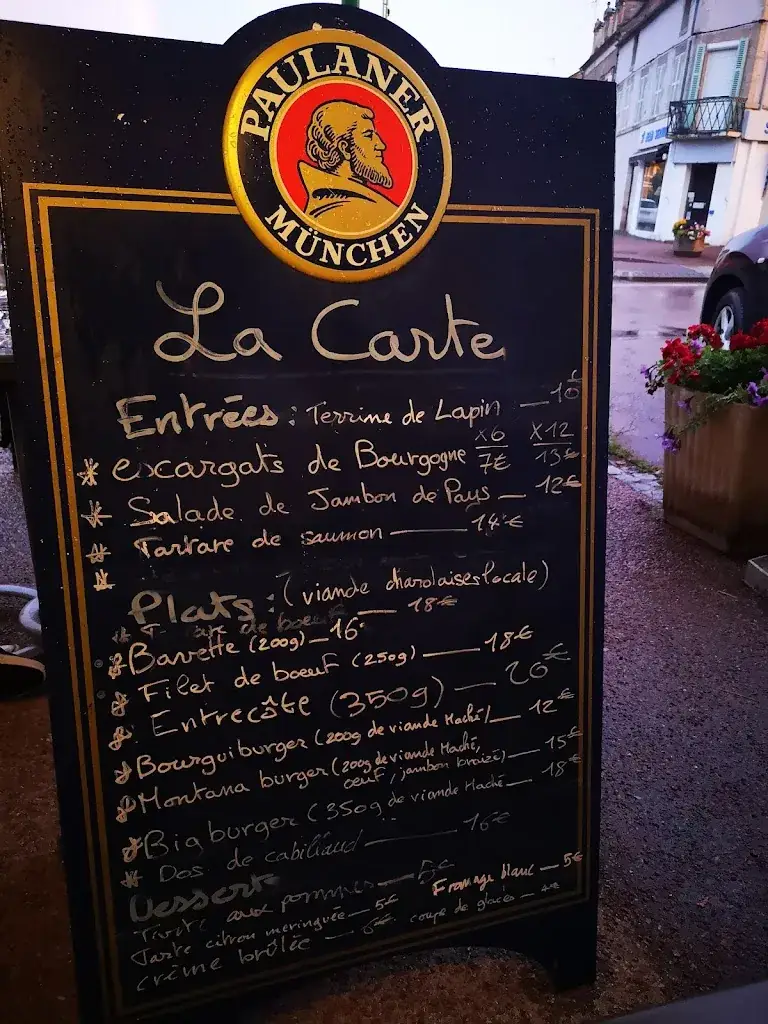 PAULANER
MÜNCHEN
La Carte
Entrées : Terrine de Lapin — 10€
* escargats de Bourgogne x6 7€ x12 13€
* Salade de Jambon de Pays — 12€
* Tartare de saumon — 14€
*
Plats : (viande charolaises locale)
* de boeuf — 18€
* Bavette (200g) — 16
* Filet de boeuf (250g) — 18€
* Entrecôte (350g) — 20€
* Bourguiburger (200g de viande Haché) — 12€
* Montana burger (200g de viande Haché,
oeuf, jambon braizé) — 15€
* Big burger (350g de viande Haché — 18€
* Dos de cabillaud — 16€
Desserts
Tarte aux pommes — 5€ Fromage blanc — 5€
Tarte citron meringuée — 5€ coupe de glaces —
crème brûlée — 6€